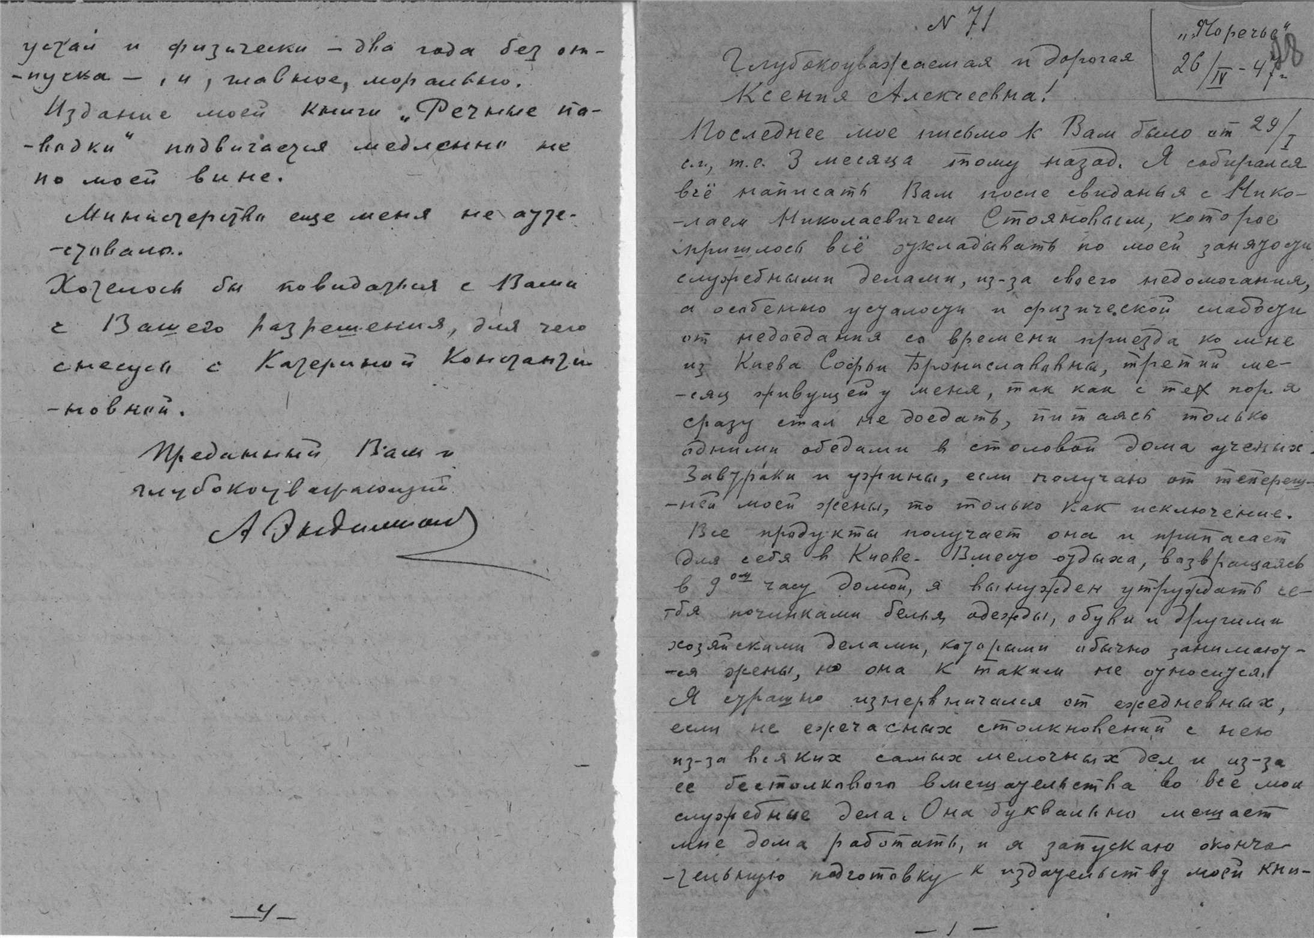 устал и физически – два года без от-
-пуска –, и, главное, морально.
Издание моей книги „Речные па-
-водки" подвигается медленно не
по моей вине.
Министерство еще меня не атте-
-стовало.
Хотелось бы повидаться с Вами
с Вашего разрешения, для чего
снесусь с Катериной Константи-
-новной.
Преданный Вам и
глубокоуважающий
– 4 –
N 71
„Поречье"
26/IV – 47 г.
98
Глубокоуважаемая и дорогая
Ксения Алексеевна!
Последнее мое письмо к Вам было от 29/I
с.г., т.е. 3 месяца тому назад. Я собирался
всё написать Вам после свиданья с Нико-
-лаем Николаевичем Стояновым, которое
пришлось всё откладывать по моей занятости
служебными делами, из-за своего недомогания,
а особенно усталости и физической слабости
от недоедания со времени приезда ко мне
из Киева Софьи Брониславовны, третий ме-
-сяц живущей у меня, так как с тех пор я
сразу стал не доедать, питаясь только
одними обедами в столовой Дома ученых.
Завтраки и ужины, если получаю от тепереш-
-ней моей жены, то только как исключение.
Все продукты получает она и припасает
для себя в Киеве. Вместо отдыха, возвращаясь
в 9ом часу домой, я вынужден утруждать се-
-бя починками белья, одежды, обуви и другими
хозяйскими делами, которыми обычно занимают-
-ся жены, но она к таким не относится.
Я страшно изнервничался от ежедневных,
если не ежечасных столкновений с нею
из-за всяких самых мелочных дел и из-за
ее бестолкового вмешательства во все мои
служебные дела. Она буквально мешает
мне дома работать, и я запускаю оконча-
-тельную подготовку к издательству моей кни-
– 1 –